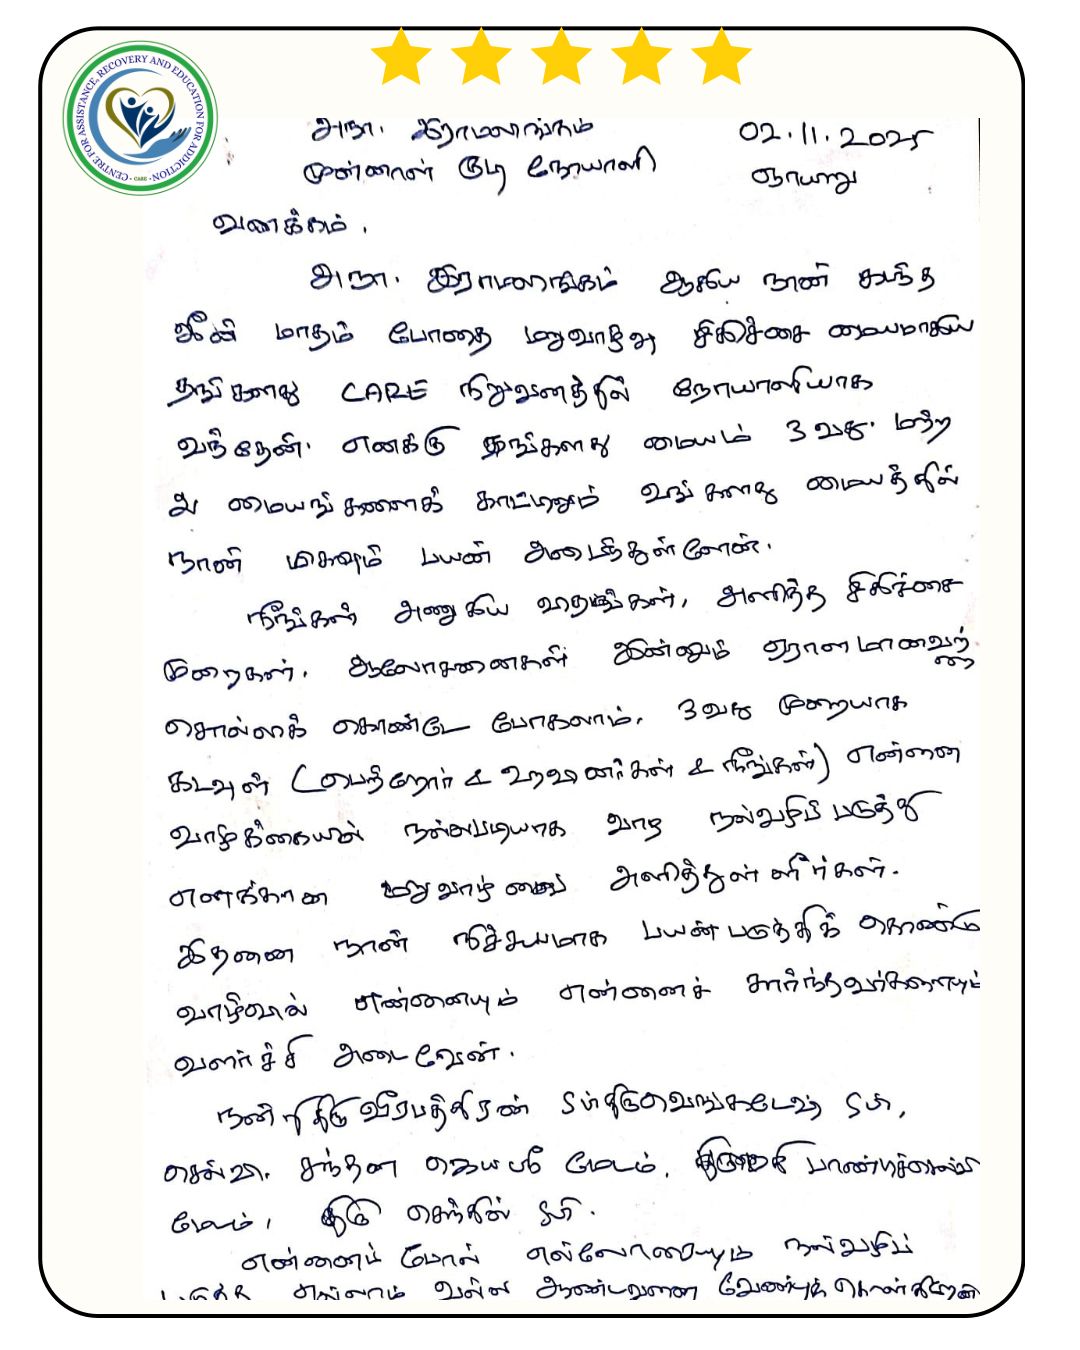 CENTRE FOR ASSISTANCE, RECOVERY AND EDUCATION FOR ADDICTION
- CARE -
அ.நா. இராமலிங்கம் 02.11.2025
முன்னாள் குடி நோயாளி ஞாயிறு
வணக்கம்.
அ.நா. இராமலிங்கம் ஆகிய நான் கடந்த
ஜூன் மாதம் போதை மறுவாழ்வு சிகிச்சை மையமாகிய
தங்களது CARE நிறுவனத்தில் நோயாளியாக
வந்தேன். எனக்கு தங்களது மையம் 3 வது. மற்ற
மையங்களைக் காட்டிலும் உங்களது மையத்தில்
நான் மிகவும் பயன் அடைந்துள்ளேன்.
நீங்கள் அணுகிய விதங்கள், அளித்த சிகிச்சை
முறைகள், ஆலோசனைகள் இன்னும் ஏராளமானவற்றை
சொல்லக் கொண்டே போகலாம். 3 வது முறையாக
கடவுள் (பெற்றோர் & உறவினர்கள் & நீங்கள்) என்னை
வாழ்க்கையில் நல்லபடியாக வாழ நல்வழிப்படுத்தி
எனக்கான மறுவாழ்வை அளித்துள்ளீர்கள்.
இதனை நான் நிச்சயமாக பயன்படுத்திக் கொண்டு
வாழ்வில் என்னையும் என்னைச் சார்ந்தவர்களையும்
வளர்ச்சி அடைவேன்.
நன்றி திரு வீரபத்திரன் Sir திரு வெங்கடேஷ் Sir,
செல்வி. சந்தன ஜெயஸ்ரீ மேடம், திருமதி பாண்டிச்செல்வி
மேடம், திரு செந்தில் Sir.
என்னைப் போல் எல்லோரையும் நல்வழிப்
படுத்த எல்லாம் வல்ல ஆண்டவனை வேண்டிக்கொள்கிறேன்